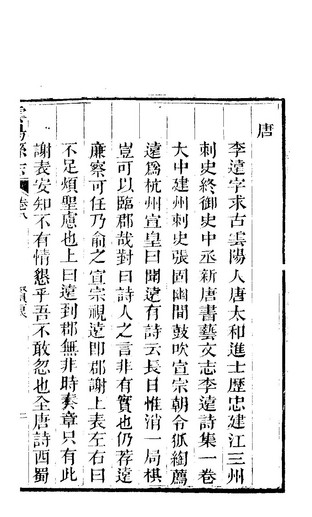 唐
李遠字求古雲陽人唐太和進士歷忠建江三州
刺史終御史中丞新唐書藝文志李遠詩集一卷
大中建州刺史張固幽閒鼓吹宣宗朝令狐綯薦
遠爲杭州宣皇曰聞遠有詩云長日惟消一局棋
豈可以臨郡哉對曰詩人之言非有實也仍荐遠
廉察可任乃俞之宣宗視遠到郡謝上表左右曰
不足煩聖慮也上曰遠到郡無非時奏章只有此
謝表安知不有情懇乎吾不敢忽也全唐詩西蜀
雲陽縣志 卷八